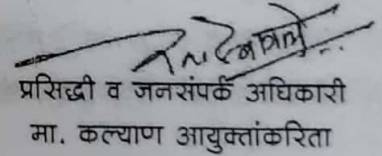 प्रसिद्धी व जनसंपर्क अधिकारी
मा. कल्याण आयुक्तांकरिता